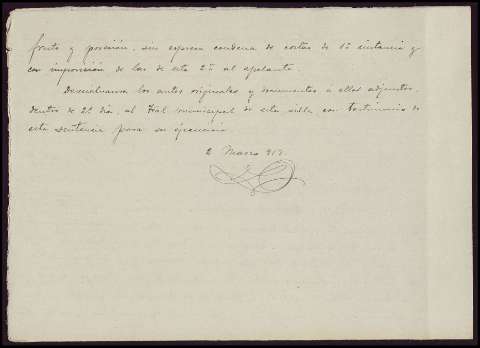 fruto y posesión, sin expresa condena de costas de 1ª instancia y
con imposición de las de esta 2ª al apelante.
Devuélvanse los autos originales y documentos á ellos adjuntos,
dentro de 2º día, al Tral municipal de esta villa, con testimonio de
esta sentencia para su ejecución.
2 Marzo